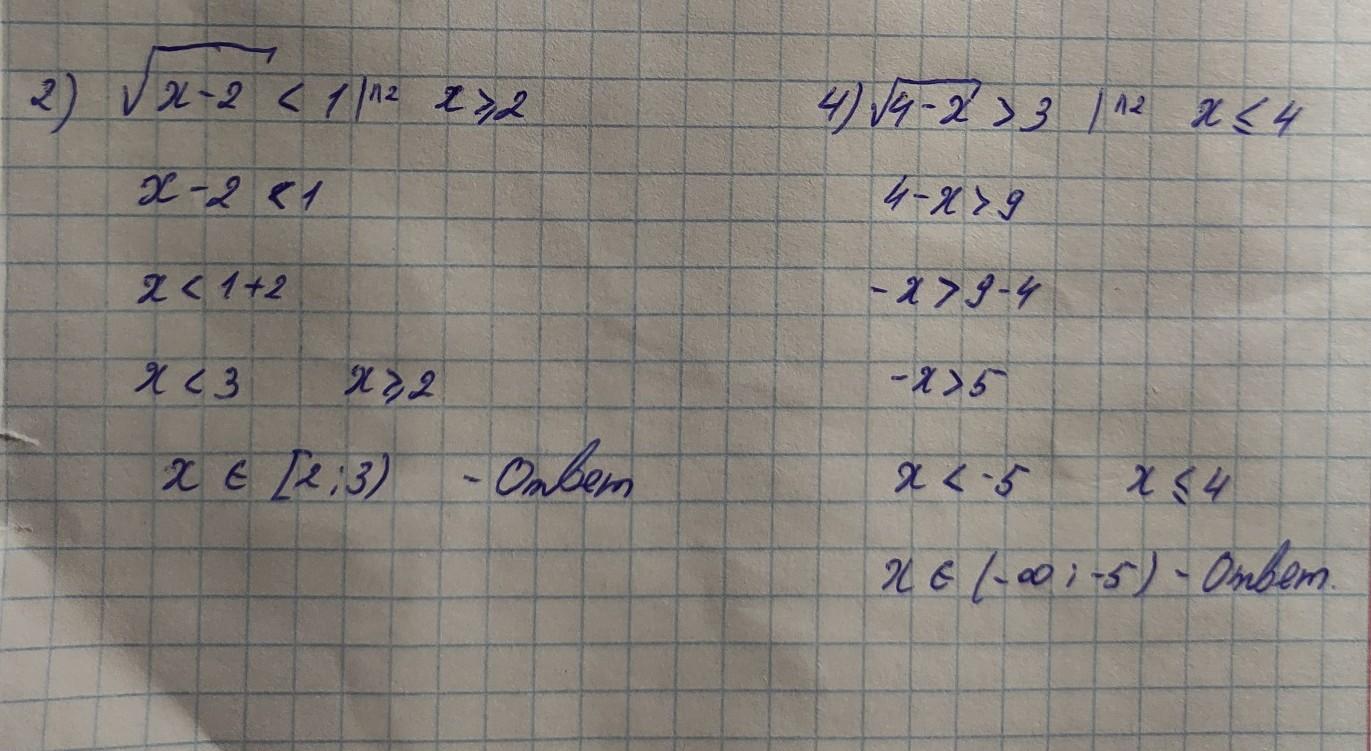 2) √x-2 < 1 |^2 x ≥ 2
x - 2 < 1
x < 1+2
x < 3 x ≥ 2
x ∈ [2;3) - Ответ
4) √4-x > 3 |^2 x ≤ 4
4-x > 9
-x > 9-4
-x > 5
x < -5 x ≤ 4
x ∈ (-∞; -5) - Ответ.